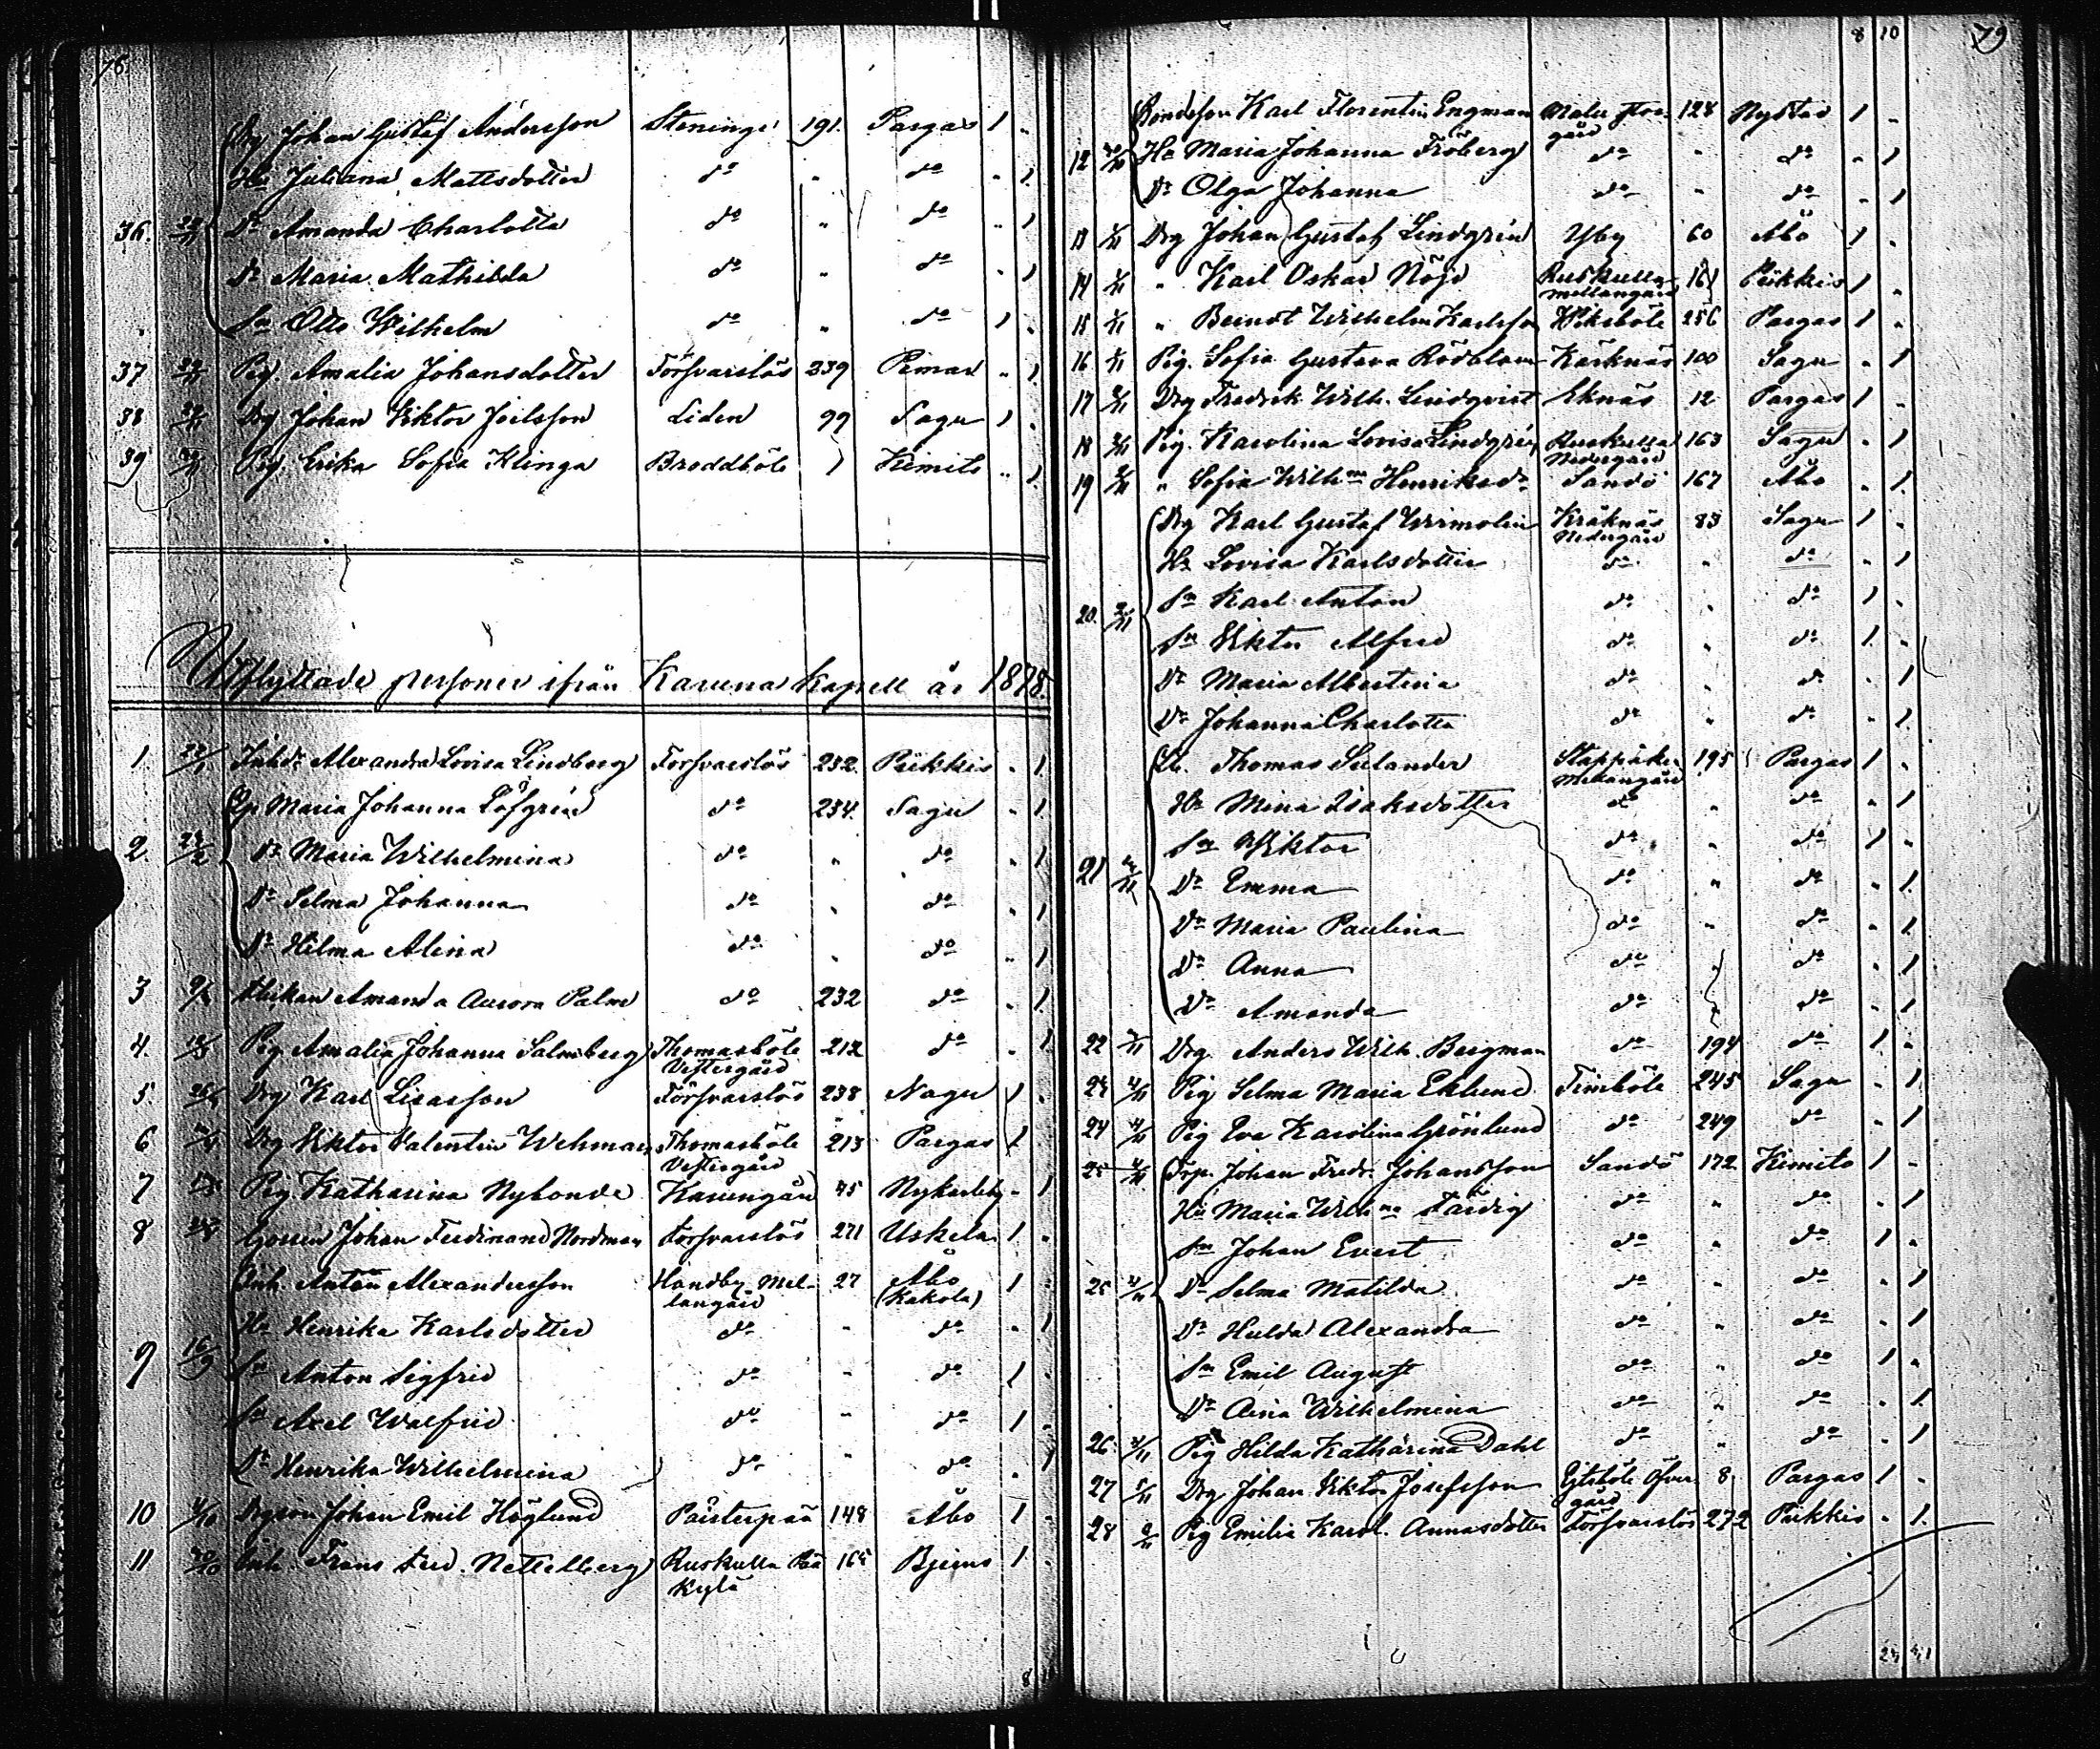 78.
Drg Johan Gustaf Andersson Steninge 191. Pargas 1 "
Hu Juliana Mattsdotter do " do " 1.
36. Dr Amanda Charlotta do " do " 1
Dr Maria Mathilda do " do " 1
Sn Otto Wilhelm do " do 1 "
37 Pig. Amalia Johansdotter Försvarslös 239 Pemar " 1
38 Drg Johan Viktor Joilsson Liden 99 Sagu 1 "
39 Pig. Erika Sofia Klinga Broddböle 1 Kimito " 1
Utflyttade personer ifrån Karuna Kapell år 1878.
1 Inhdr Alexandra Lovisa Lindberg Försvarslös 232. Piikkis " 1
Maria Johanna Löfgrén do 234. Sagu " 1
2. Dr Maria Wilhelmina do " do " 1
Dr Selma Johanna do " do " 1
Dr Hilma Alina do " do " 1
3 Amanda Aurora Palm do 232 do " 1
4. Pig Amalia Johanna Salmberg Thomasböle 212 do " 1
Vestergård
5 Drg Karl Lisasson Försvarslös 238 Nagu 1 "
6 Drg Viktor Valentin Wehman Thomasböle 213 Pargas 1
Vestergård
7 Pig Katharina Nybonde Karungård 45 Nykarleby " 1
8 Gossen Johan Ferdinand Nordman Försvarslös 271 Uskela 1 "
Inh. Anton Alexandersson Handby Mel- 27 Åbo 1 "
langård (Kakola)
Hu Henrika Karlsdotter do " do " 1
9 16/9 Sn Anton Sigfrid do " do 1 "
Sn Axel Walfrid do " do 1 "
Dr Henrika Wilhelmina do " do " 1
10 4/10 Drgson Johan Emil Höglund Paisterpää 148 Åbo 1 "
11 30/10 Inh. Frans Ferd. Nettelberg Ruskulla Pää 165 Bjerno 1 "
kylä
8
8 10 79
Bondeson Karl Florentin Engman 128 Nystad 1 "
gård
12 Hu Maria Johanna Fröberg do " do " 1
Dr Olga Johanna do " do " 1
13 1/11 Drg Johan Gustaf Lindgrén Yby 60 Åbo 1 "
14 1/11 " Karl Oskar Nöjd Ruskulla 161 Piikkis 1 "
mellangård
15 1/11 " Berndt Wilhelm Karlsson Viksböle 256 Pargas 1 "
16 1/11 Pig. Sofia Gustava Rödblom Karknäs 100 Sagu " 1
17 2/11 Drg Fredrik Wilh. Lindqvist Eknäs 12 Pargas 1 "
18 2/11 Pig. Karolina Lovisa Lindgrén Ruskulla 163 Sagu " 1
Nedergård
19 2/11 " Sofia Wilhna Henriksdr Sandö 167 Åbo " 1.
Drg Karl Gustaf Wirmolin Kräknäs 83 Sagu 1 "
Nedergård
Hu Lovisa Karlsdotter do " do " 1
20. 2/11 Sn Karl Anton do " do 1 "
Sn Viktor Alfred do " do 1 "
Dr Maria Albertina do " do " 1
Dr Johanna Charlotta do " do " 1
Thomas Selander Stappåker 195 Pargas 1 "
Mellangård
Hu Mina Isaksdotter do " do " 1
Sn Viktor do " do 1 "
21 Dr Emma do " do " 1.
Dr Maria Paulina do " do " 1.
Dr Anna do " do " 1
Dr Amanda do " do " 1
22 Drg Anders Wilh. Bergman do 194 do 1 "
23 4/11 Pig Selma Maria Eklund Timböle 245 Sagu " 1
24 4/11 Pig Eva Karolina Grönlund do 249 do " 1
25 4/11 Torp. Johan Fredr. Johansson Sandö 172 Kimito 1 "
Hu Maria Wilhna Färdig do " do " 1
Sn Johan Evert do " do 1 "
25 4/11 Dr Selma Matilda do " do " 1
Dr Hulda Alexandra do " do " 1
Sn Emil August do " do 1 "
Dr Aina Wilhelmina do " do " 1.
26. 4/11 Pig Hilda Katharina Dahl do " do " 1
27 5/11 Drg Johan Viktor Josefsson Ejtsböle Öfver 8 Pargas 1 "
gård
28 Pig Emilia Karol. Annasdotter Försvarslös 272 Piikkis " 1.